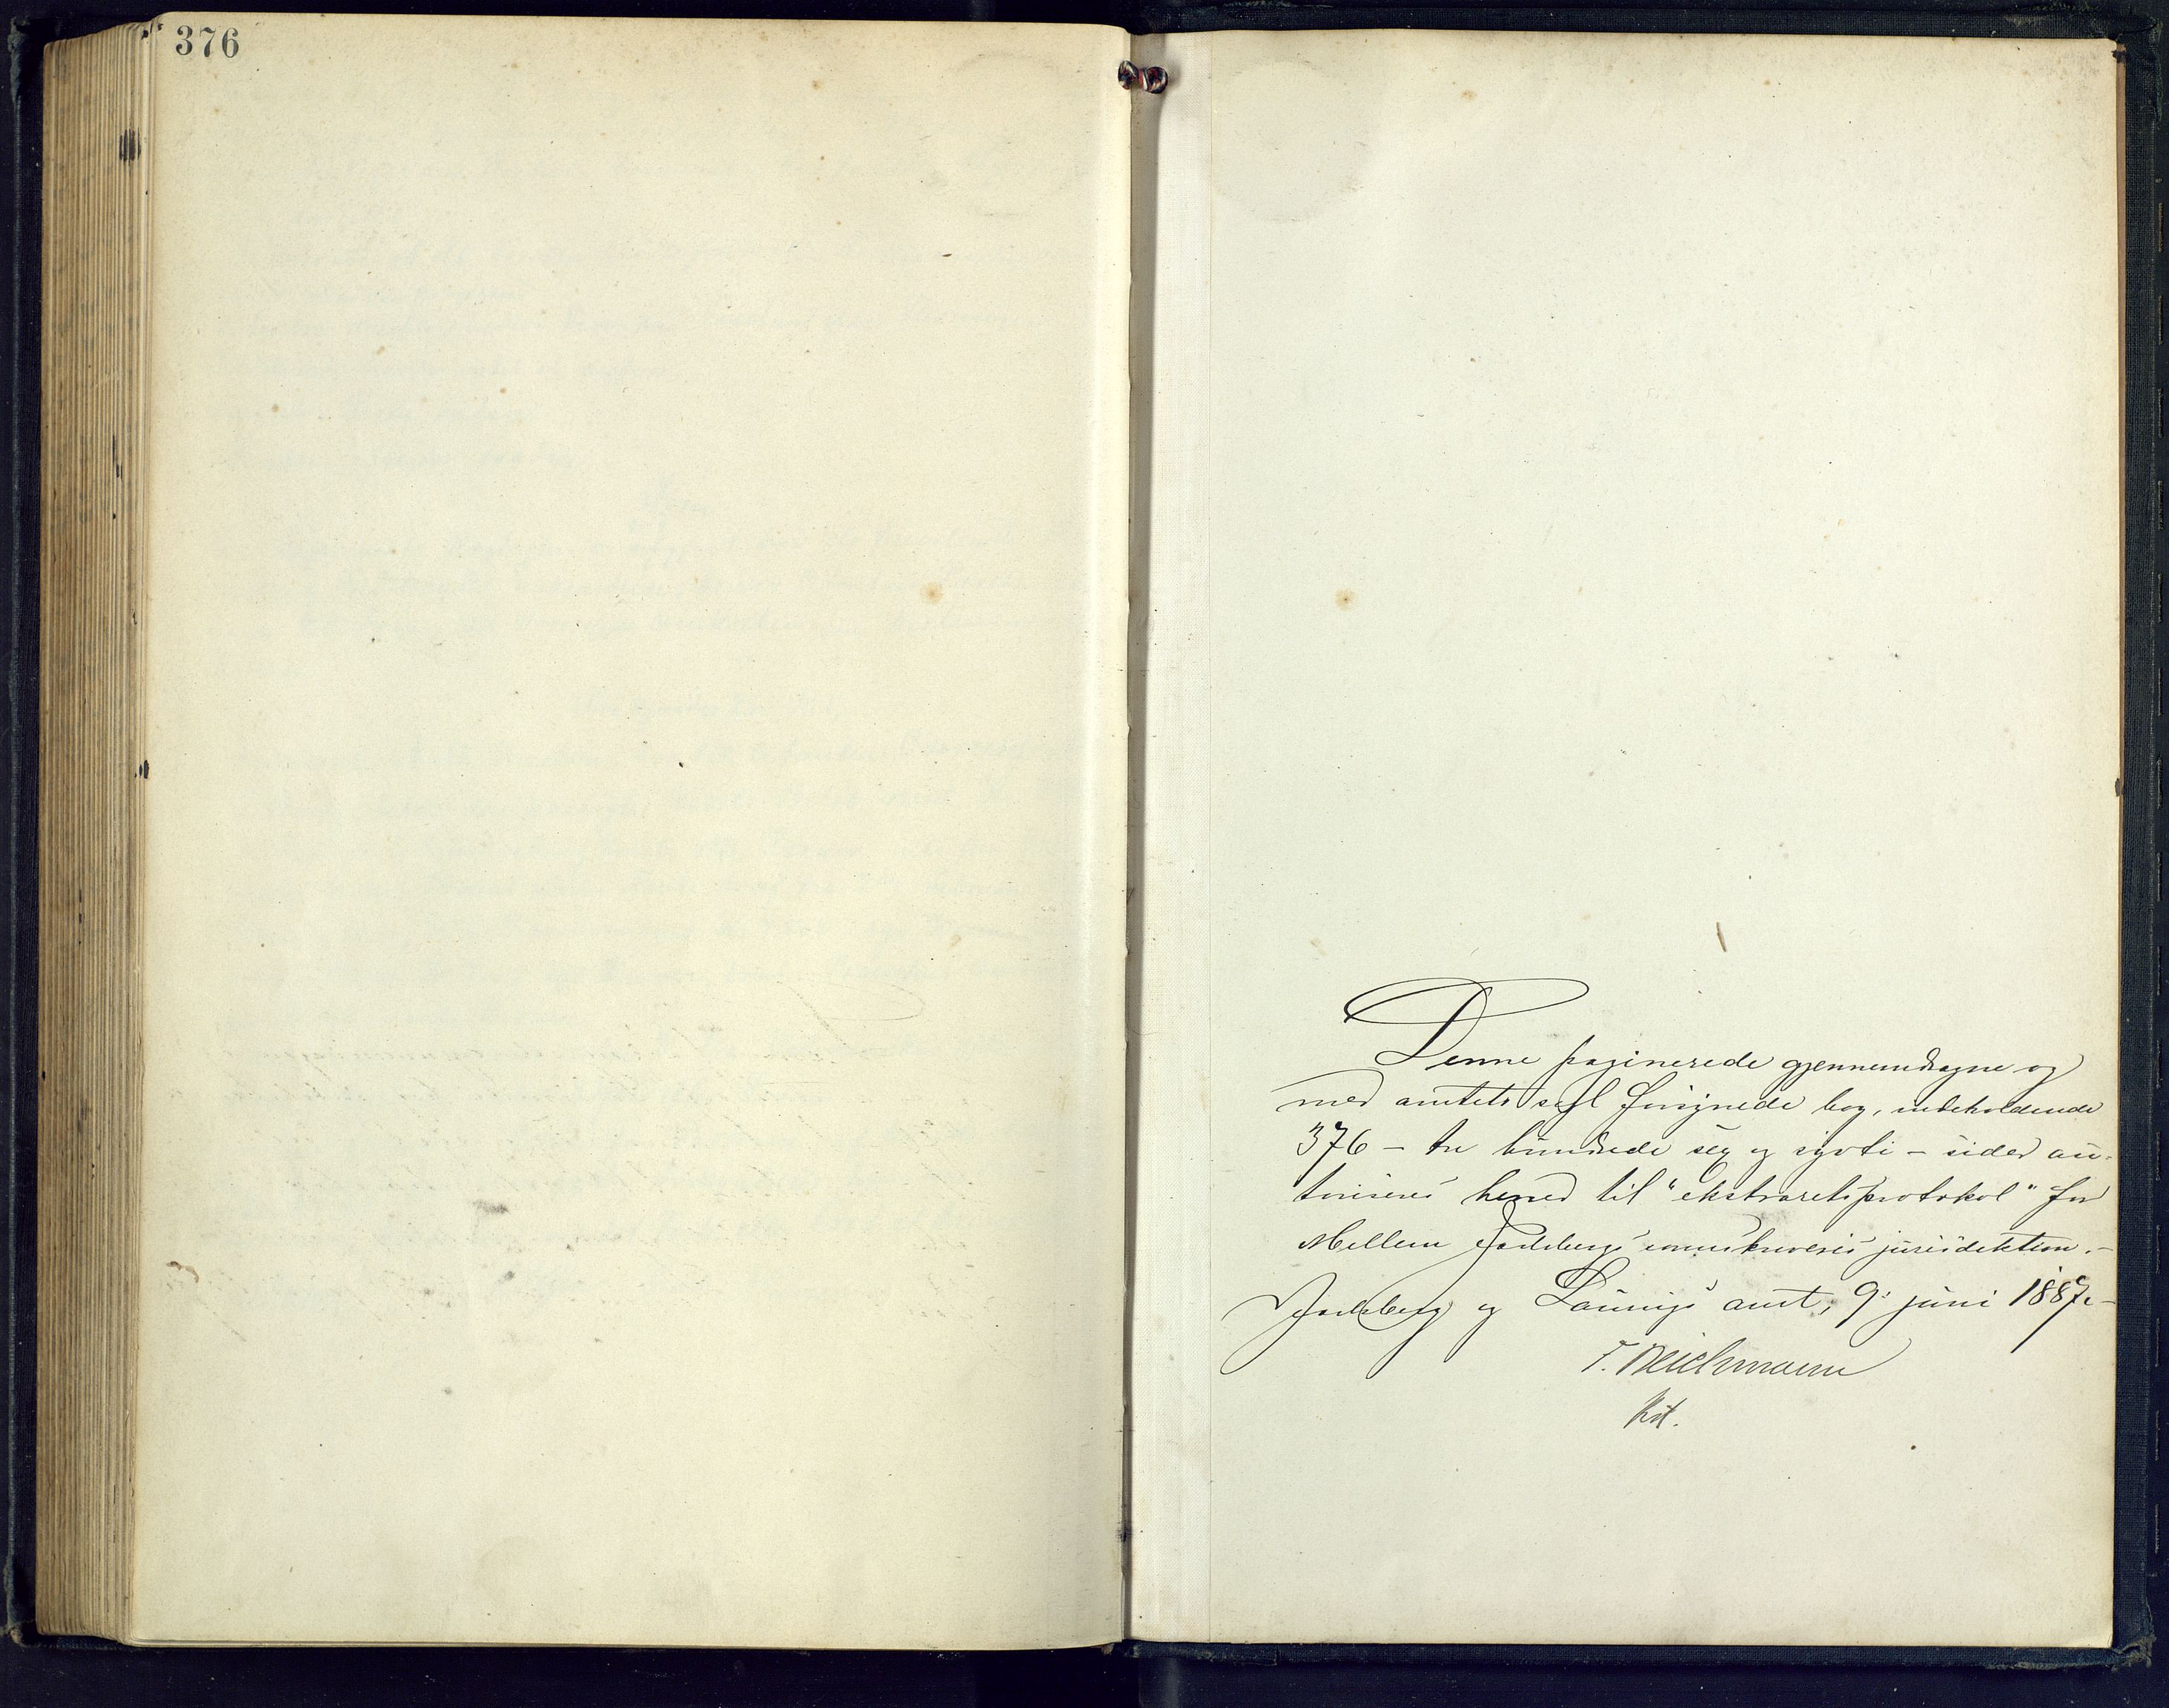 376
Denne paginerede gjennemdragne og
med amtets segl forsynede bog, indeholdende
376 - tre hundrede sex og sytti - sider au-
toriseres herved til "ekstraretsprotokol" for
Mellem Jarlsbergs sorenskriveris jurisdiktion.-
Jarlsberg og Laurvigs amt, 9' juni 1887.-
T. Reichmann
kst.